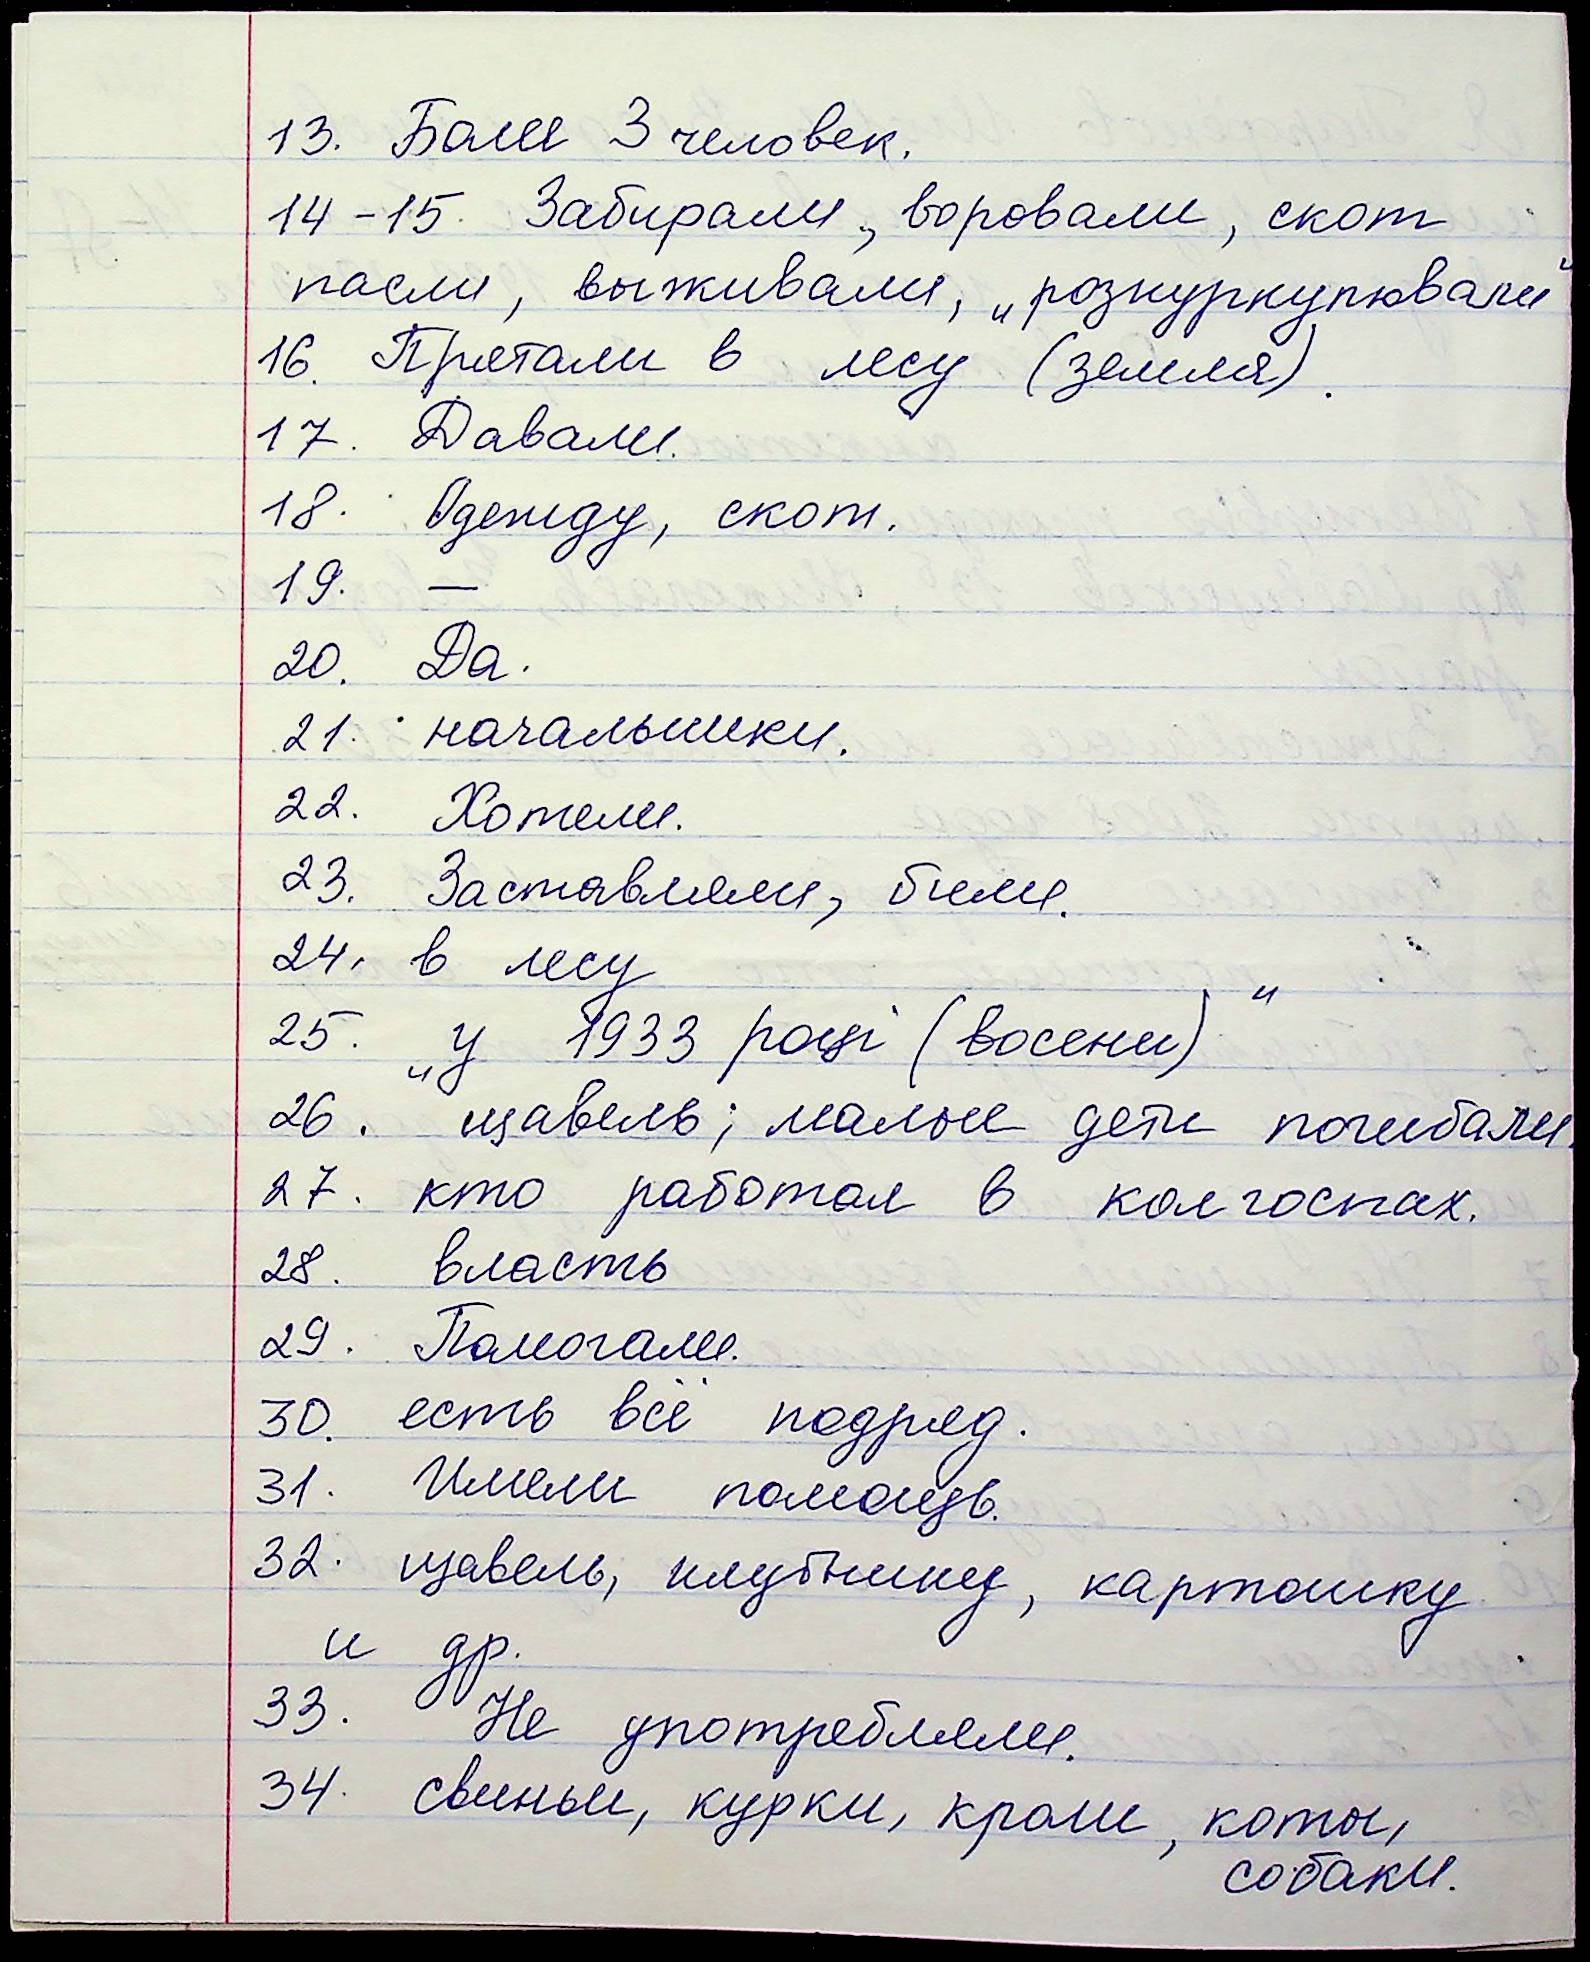 13. Боли 3 человек.
14-15. Забирали, воровали, скот
пасли, выживали, „розкуркулювали"
16. Прятали в лесу (земля).
17. Давали.
18. Одежду, скот.
19. —
20. Да.
21. начальники.
22. Хотели.
23. Заставляли, били.
24. в лесу
25. „у 1933 році (восени)"
26. щавель; малые дети погибали.
27. кто работал в колгоспах.
28. власть
29. Помогали.
30. есть всё подряд.
31. Имели помощь.
32. щавель, клубнику, картошку
и др.
33. Не употребляли.
34. свиньи, курки, кроли, коты,
собаки.